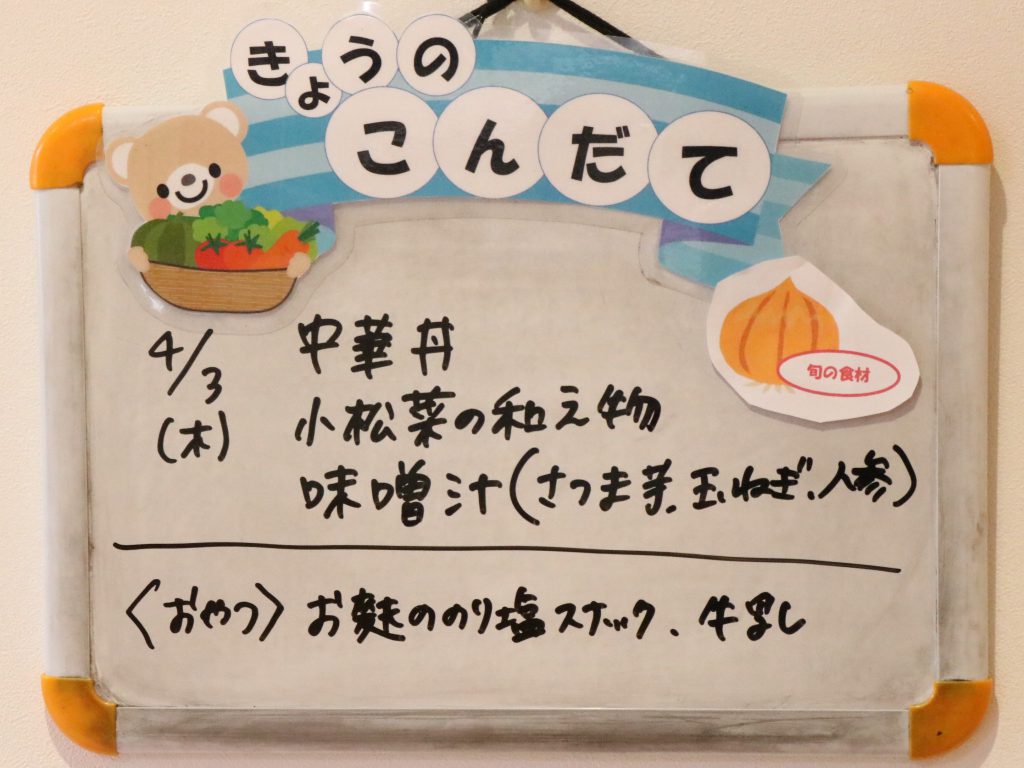 きょうの
こんだて
旬の食材
4/3
(木)
中華丼
小松菜の和え物
味噌汁(さつま芋、玉ねぎ、人参)
〈おやつ〉お麩ののり塩スナック、牛乳